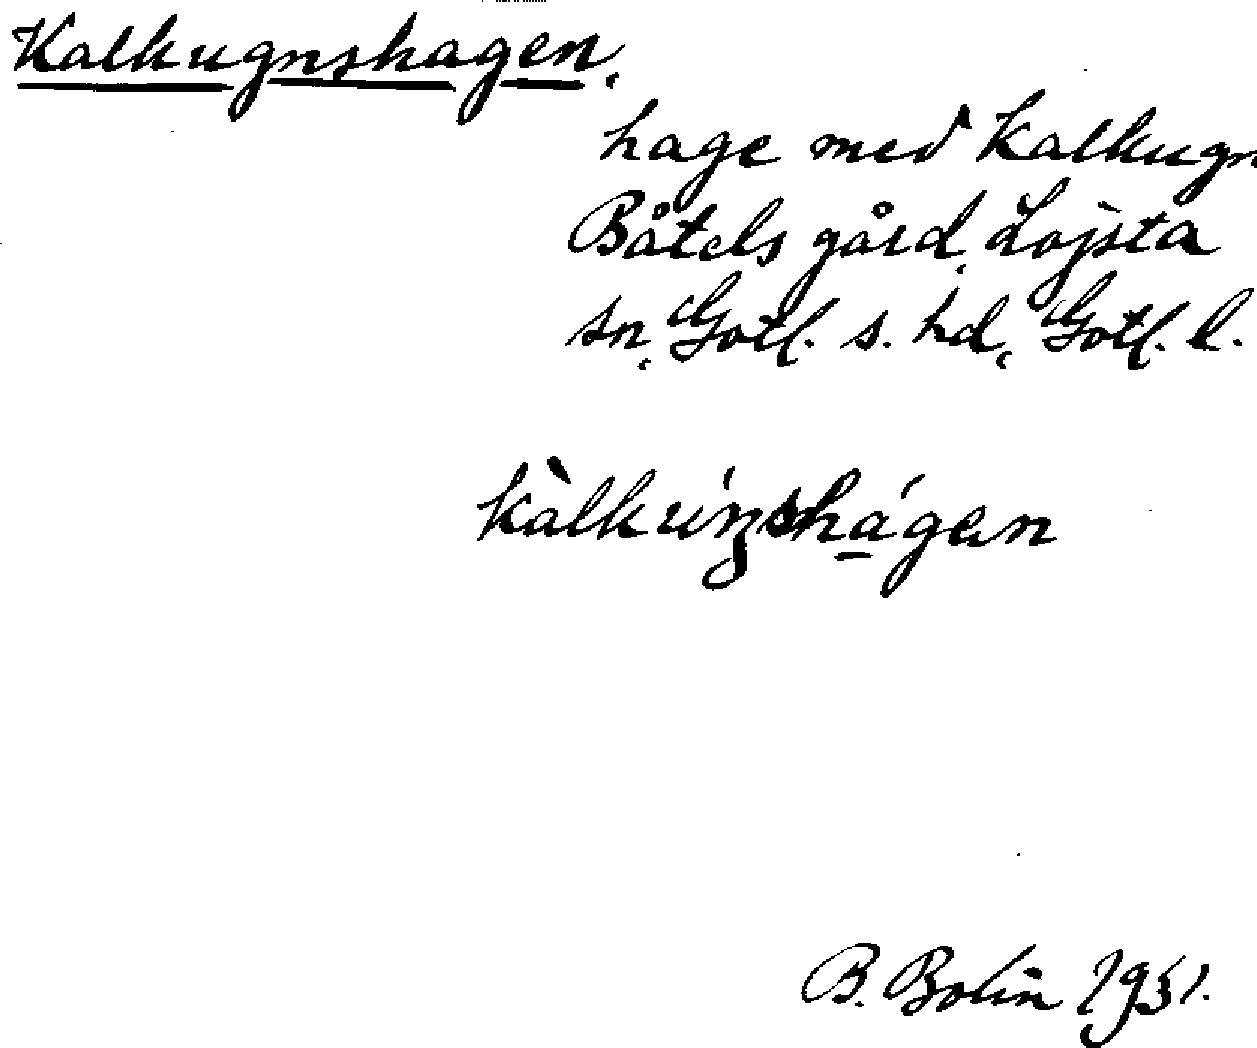 Kalkugnshagen,
hage med Kalkugn
Båtels gård, Lojsta
sn, Gotl. s. hd, Gotl. l.
kàlkúŋshágen
B. Bolin 1951.